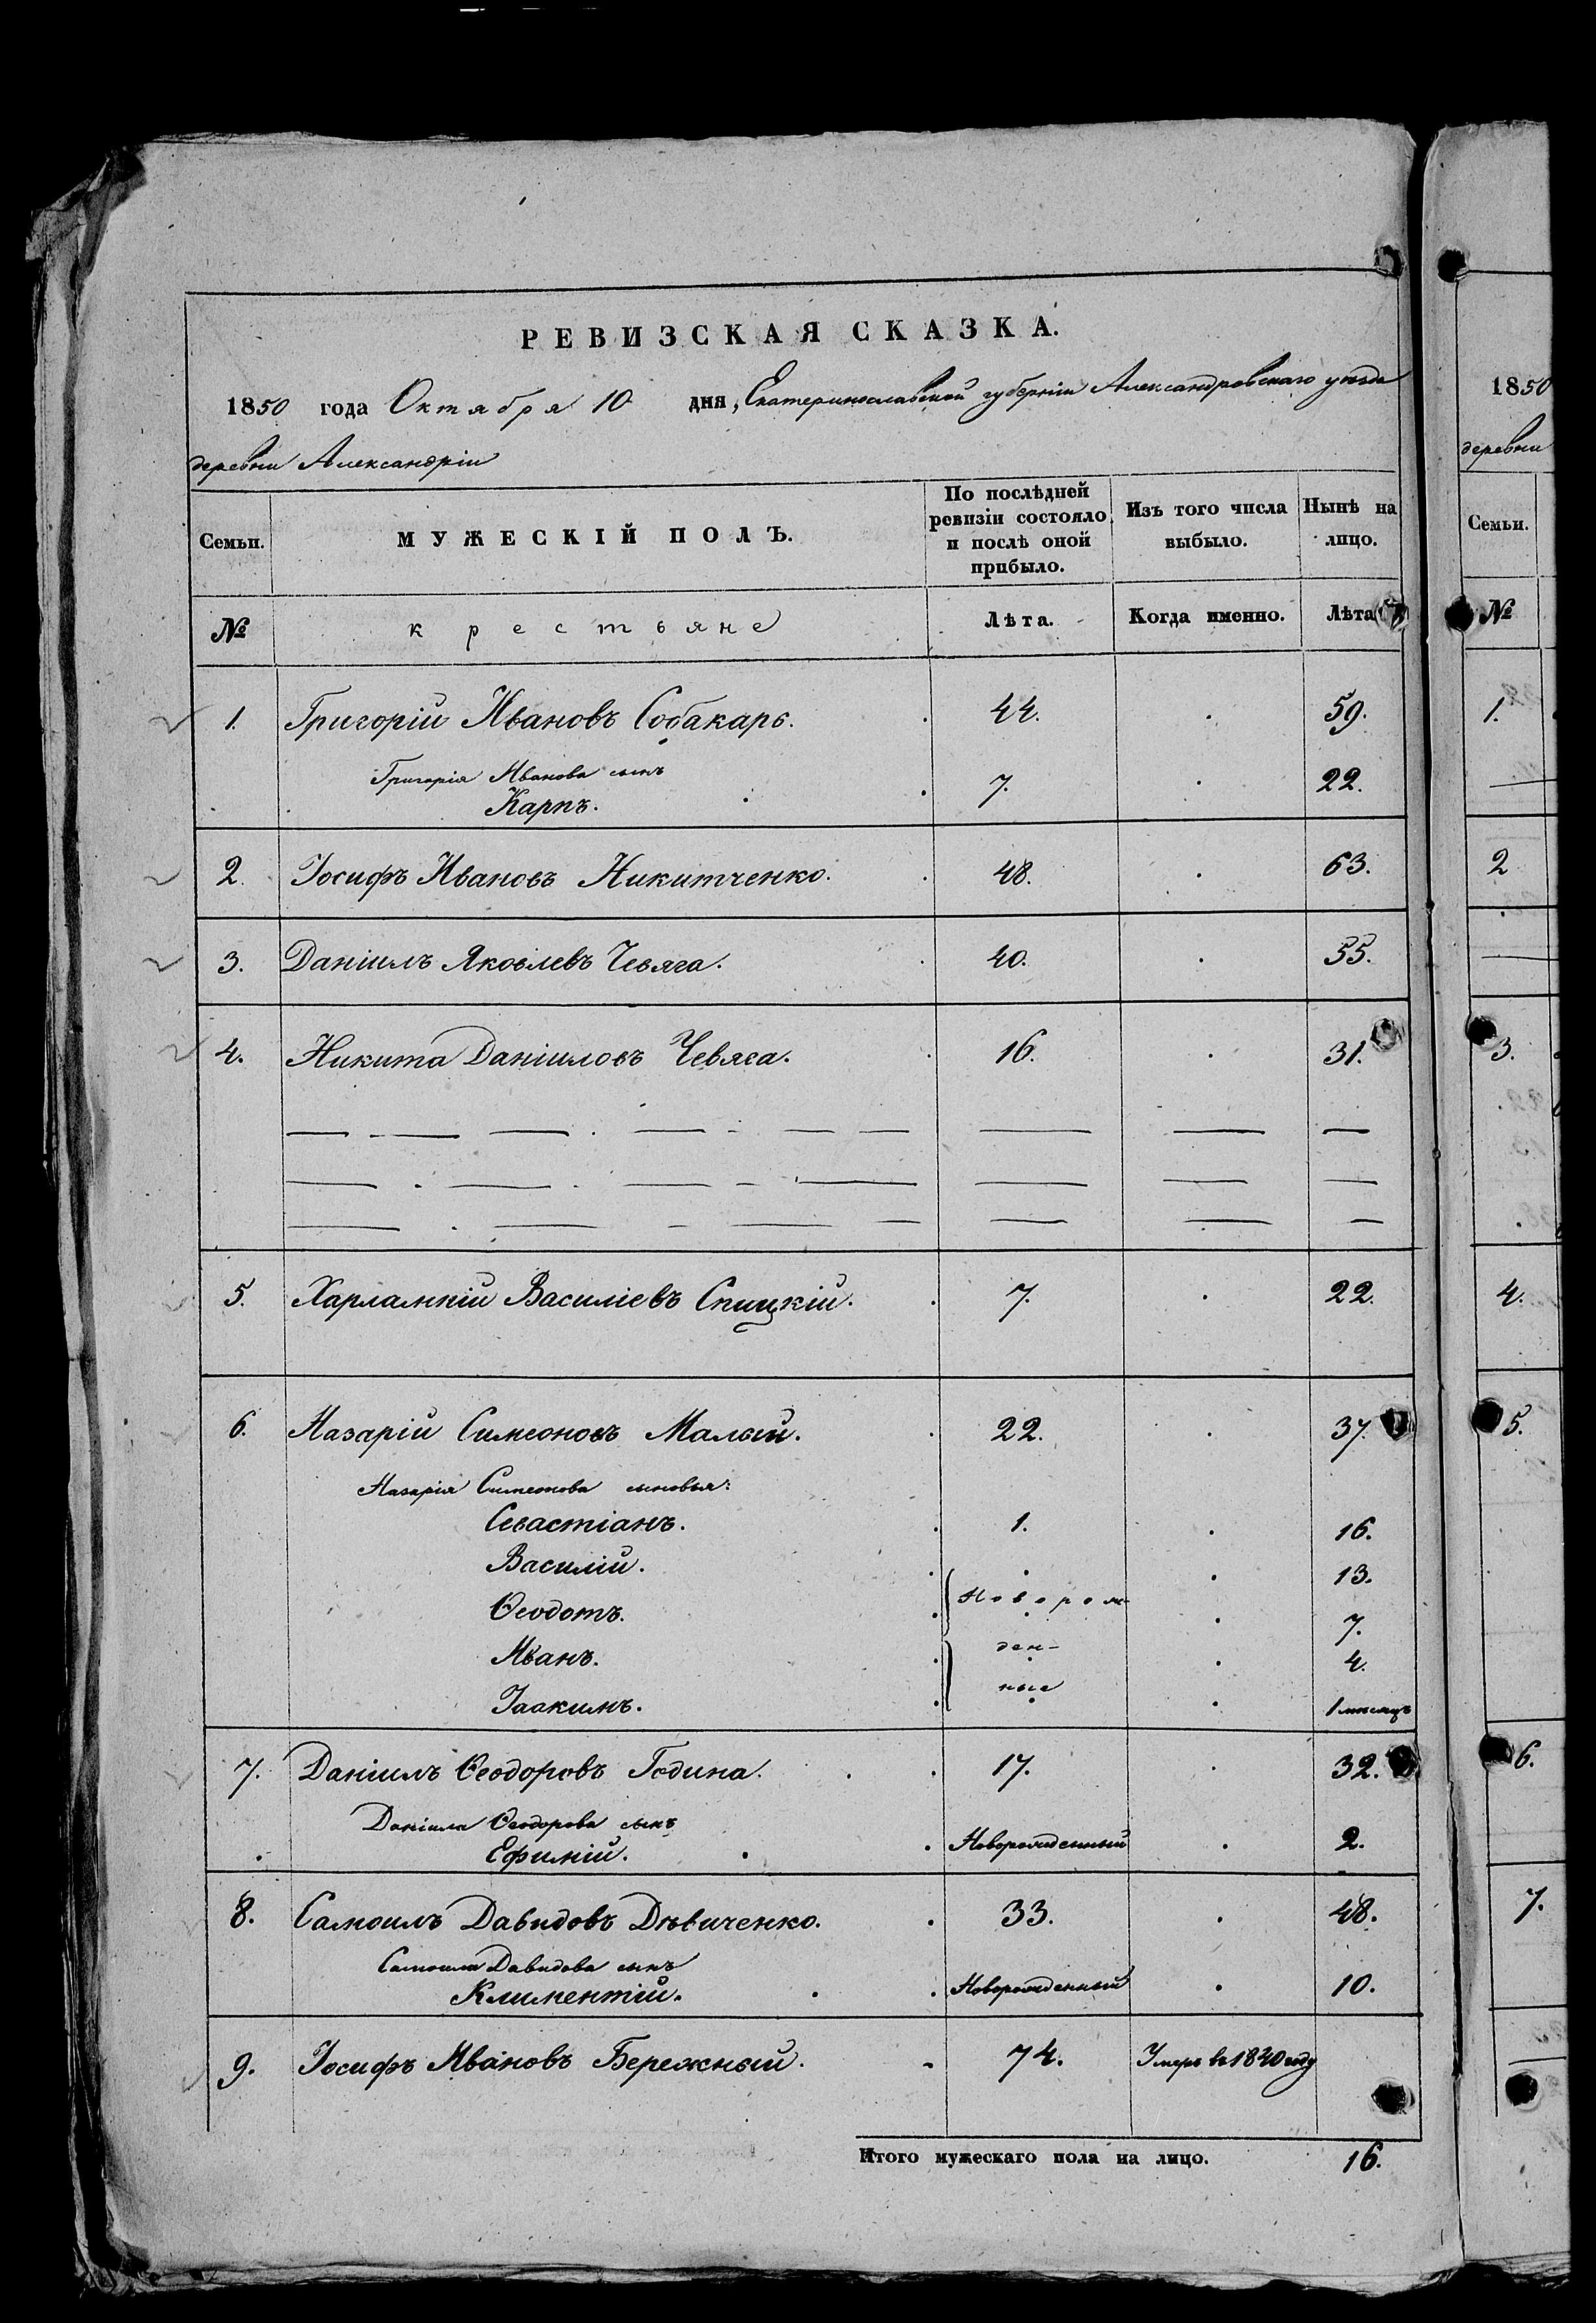 РЕВИЗСКАЯ СКАЗКА.
1850 года Октября 10 дня, Екатеринославской губерніи Александровскаго уѣзда
деревни Александріи
Семьи. МУЖЕСКІЙ ПОЛЪ. По послѣдней ревизіи состояло и послѣ оной прибыло. Изъ того числа выбыло. Нынѣ на лицо.
№ крестьяне Лѣта. Когда именно. Лѣта
1. Григорій Ивановъ Собакарь. 44. 59.
Григорія Иванова сынъ
Карпъ. 7. 22.
2. Іосифъ Ивановъ Никитченко. 48. 63.
3. Даніилъ Яковлевъ Чевяга. 40. 55.
4. Никита Даніиловъ Чевяга. 16. 31.
5. Харлампій Василіевъ Спицкій. 7. 22.
6. Назарій Симеоновъ Малый. 22. 37.
Назарія Симеонова сыновья:
Севастіанъ. 1. 16.
Василій. 13.
Ѳеодотъ. Новорож- 7.
Иванъ. ден- 4.
Іоакимъ. ные 1 мѣсяцъ
7. Даніилъ Ѳеодоровъ Година. 17. 32.
Даніила Ѳеодорова сынъ
Ефимій. Новорожденный 2.
8. Самоилъ Давидовъ Дѣвиченко. 33. 48.
Самоила Давидова сынъ
Климентій. Новорожденный 10.
9. Іосифъ Ивановъ Бережный. 74. Умеръ въ 1840 году
Итого мужескаго пола на лицо. 16.
1850
деревни
Семьи.
№
1.
2
3.
4.
5.
6.
7.